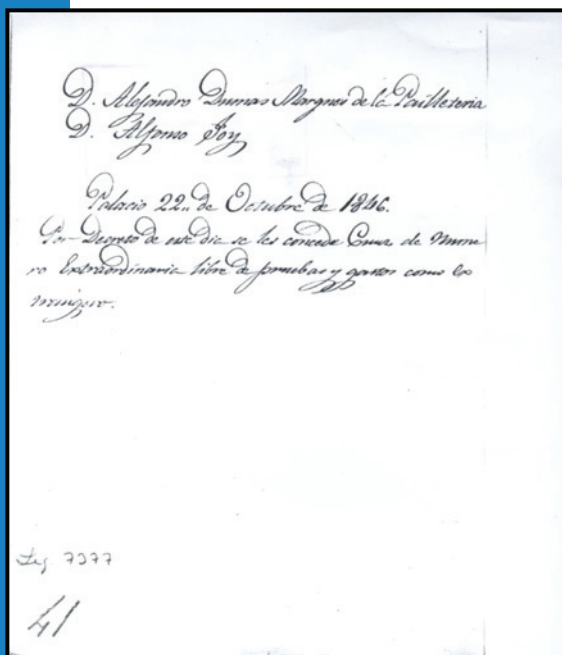 D. Alejandro Dumas Marques de la Pailleteria
D. Alfonso Foy
Palacio 22,, de Octubre de 1846.
Por Decreto de este dia se les concede Cruz de Nume
ro Extraordinaria libre de pruebas y gastos como ex
trangero.
Leg 7377
41